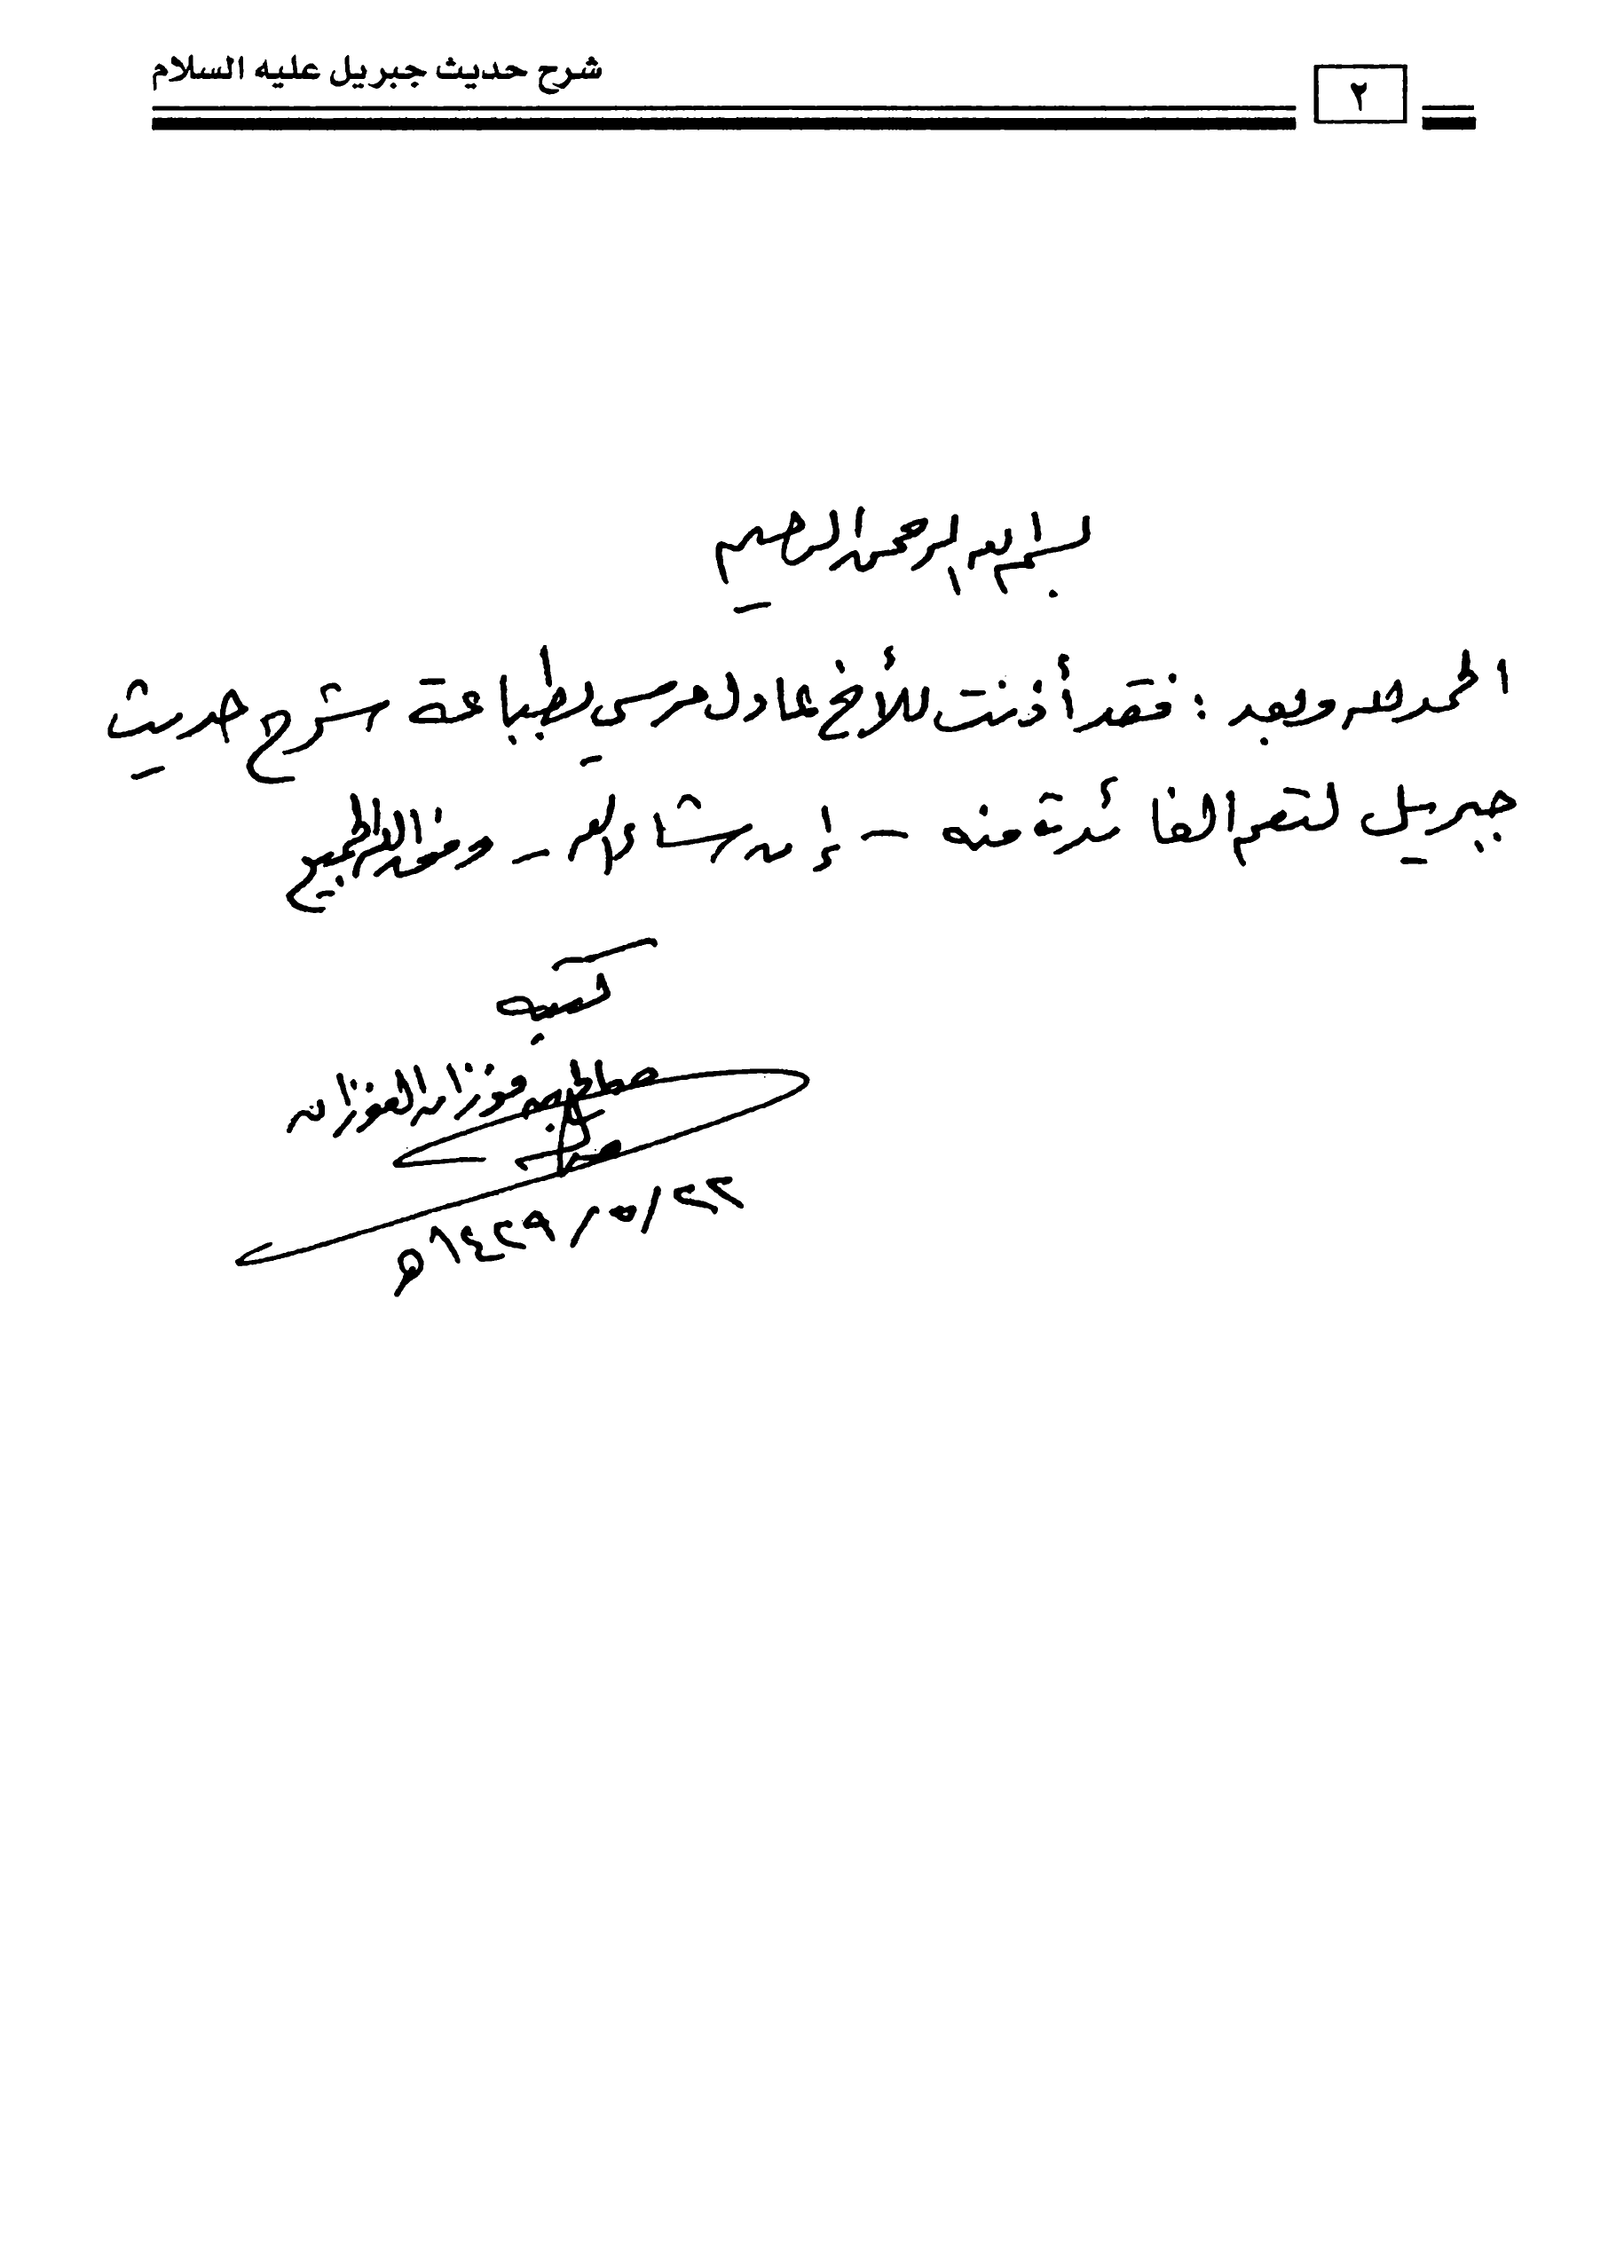 شرح حديث جبريل عليه السلام
٢
بسم الله الرحمن الرحيم
الحمد لله وبعد : فقد أذنت للأخ عادل مرسي بطباعة شرح حديث
جبريل لتعم الفائدة منه - إن شاء الله - وفق الله الجميع
كتبه
صالح بن فوزان الفوزان
٢٢/٥/١٤٢٩هـ